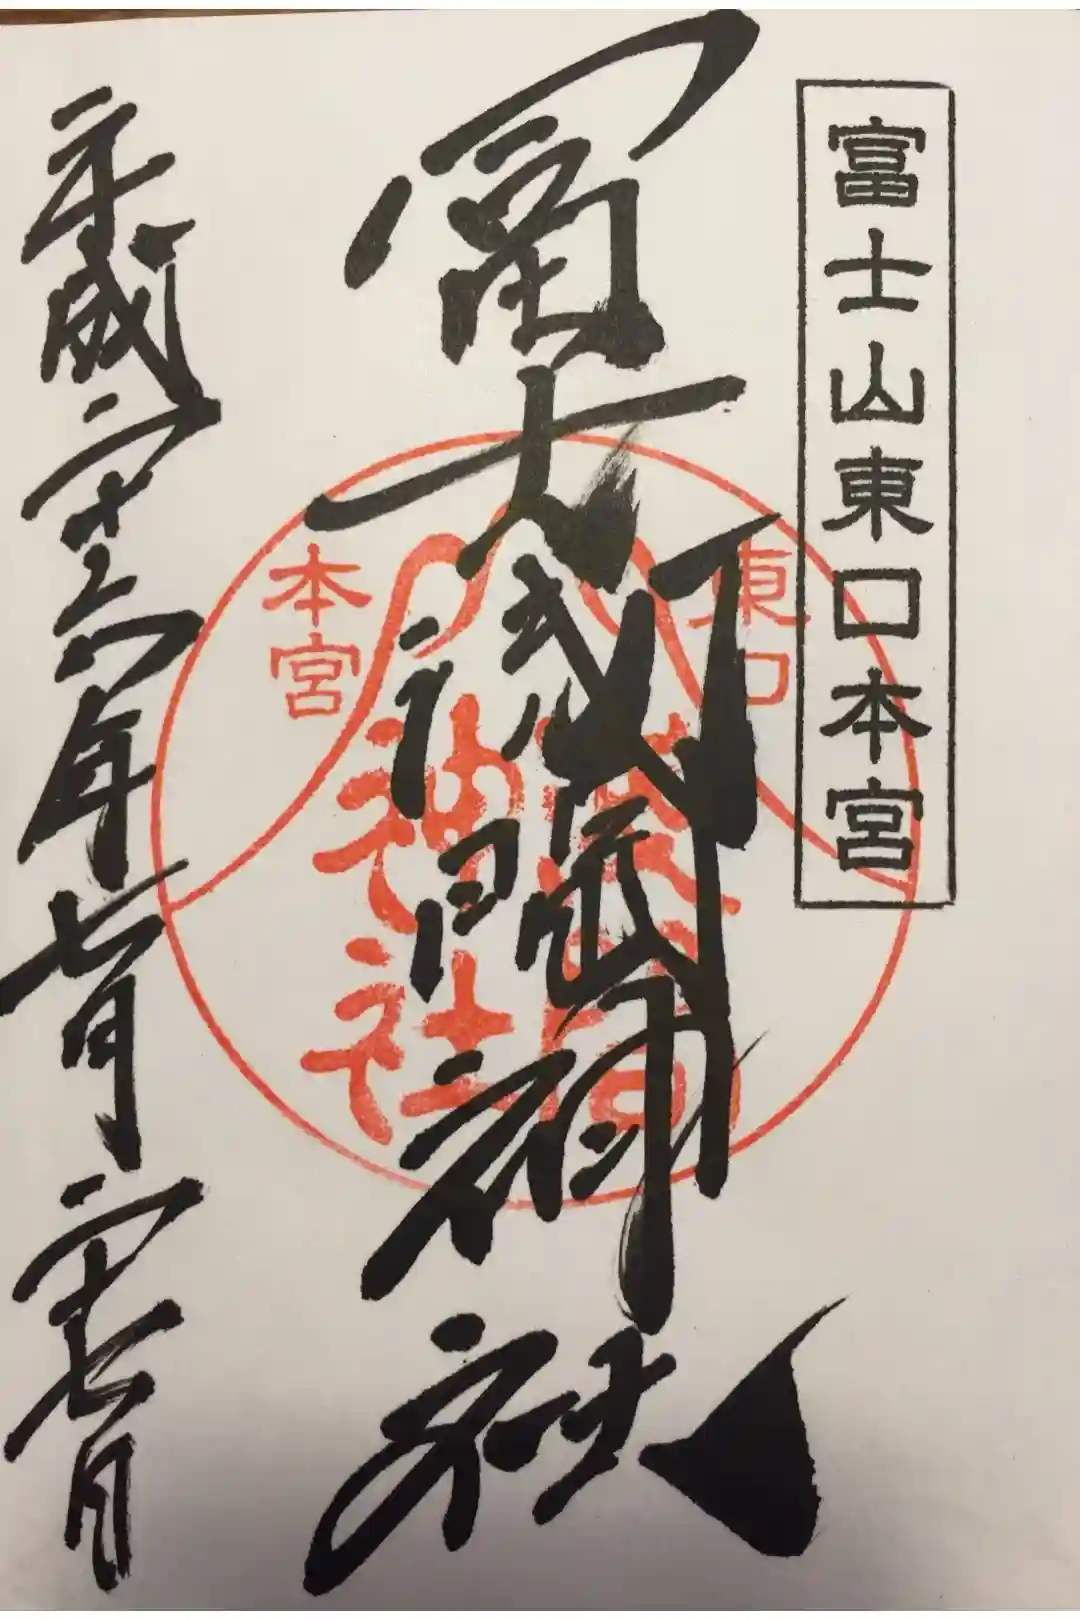 富士山東口本宮
冨士浅間神社
平成二十六年七月二十七日
東口
本宮
神社